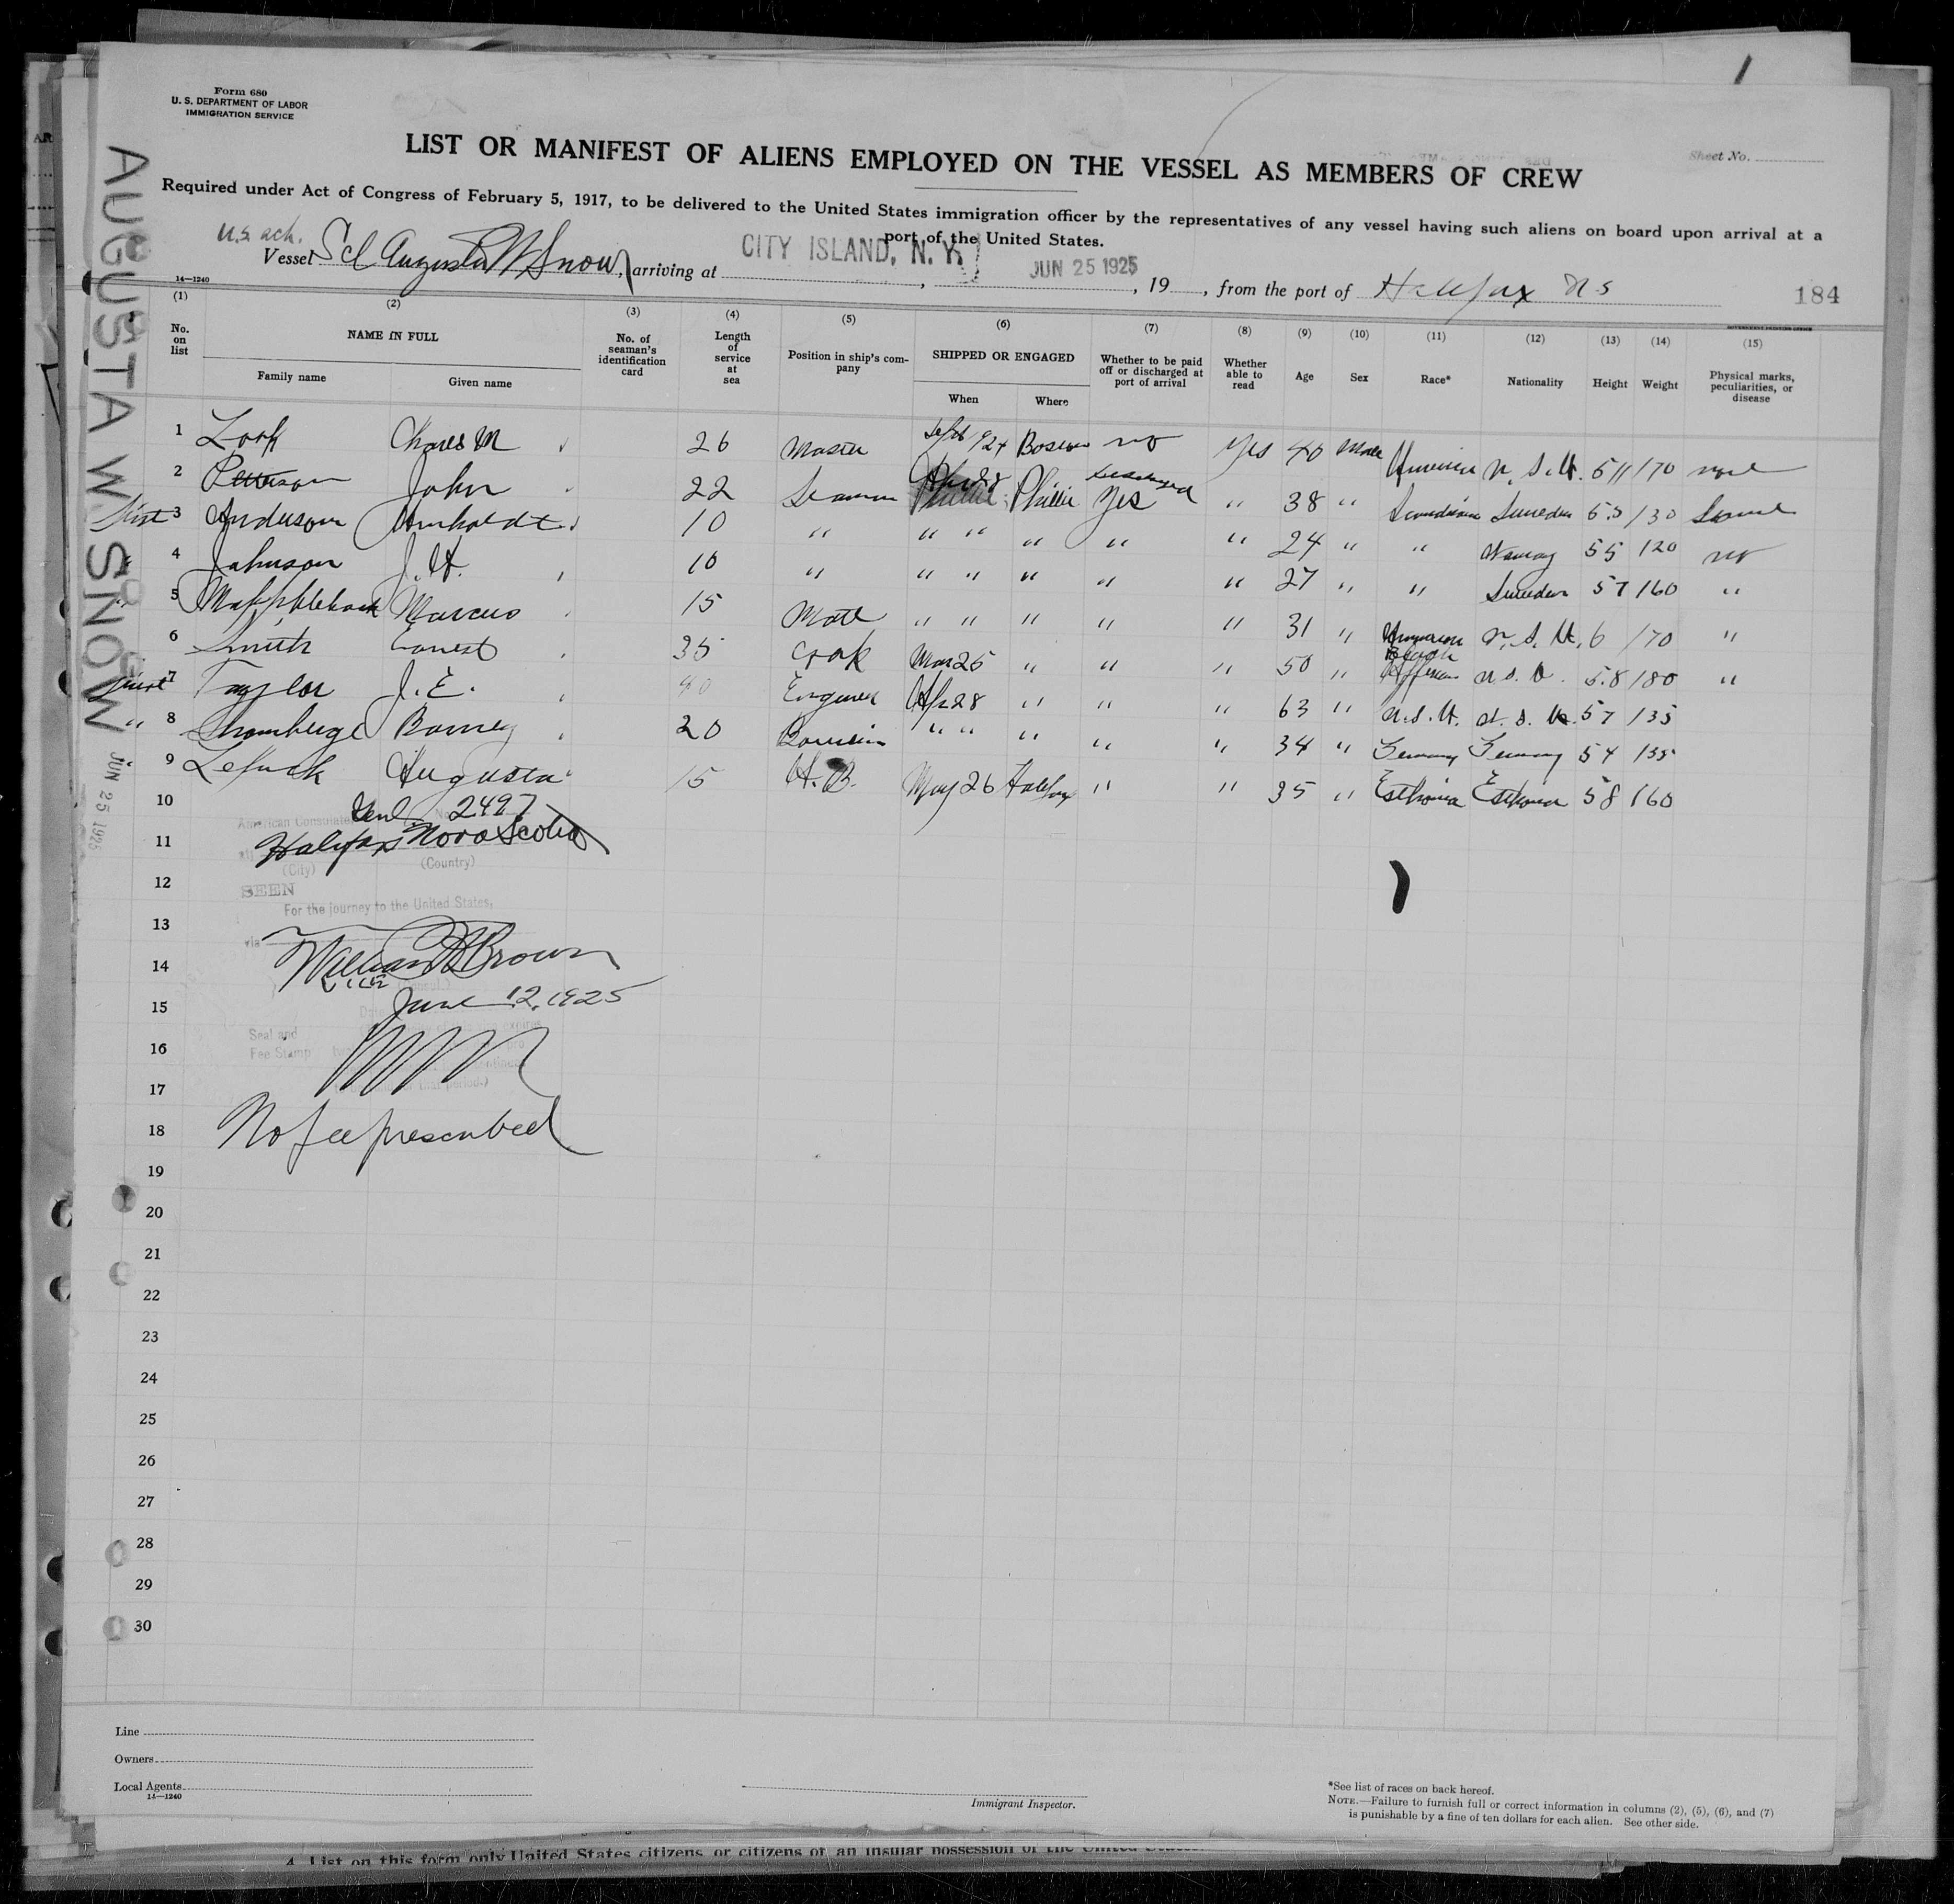 1
Form 680
U. S. DEPARTMENT OF LABOR
IMMIGRATION SERVICE
Sheet No.
LIST OR MANIFEST OF ALIENS EMPLOYED ON THE VESSEL AS MEMBERS OF CREW
Required under Act of Congress of February 5, 1917, to be delivered to the United States immigration officer by the representatives of any vessel having such aliens on board upon arrival at a
port of the United States.
U.S. sch.
Vessel Scl Augusta W Snow, arriving at CITY ISLAND, N. Y. , JUN 25 1925 , 19 , from the port of Halifax N S
14—1240
184
AUGUSTA W. SNOW
JUN 25 1925
(1) (2) (3) (4) (5) (6) (7) (8) (9) (10) (11) (12) (13) (14) (15)
No. on list
NAME IN FULL
Family name
Given name
No. of seaman's identification card
Length of service at sea
Position in ship's company
SHIPPED OR ENGAGED
When
Where
Whether to be paid off or discharged at port of arrival
Whether able to read
Age
Sex
Race*
Nationality
Height
Weight
Physical marks, peculiarities, or disease
1 Look Charles M 26 Master Sept 1924 Boston no Yes 40 Male American U.S.A. 5 11 170 none
2 Petterson John 22 Seaman Apr 28 Phillie discharged Yes " 38 " Scandinavian Sweden 5.5 130
3 Anderson Humboldt 10 " " " " " " 24 " " Norway 5 5 120 no
4 Johnson J. H. 10 " " " " " " 27 " " Sweden 5 7 160 "
5 Marcus 15 Mate " " " " " 31 " American U.S.A. 6 170 "
6 Smith Ernest 35 Cook Mar 25 " " " 50 " Black African U.S.A. 5.8 180 "
7 Taylor J. E. 40 Engineer Apr 28 " " " 63 " U.S.A. U.S.A. 5 7 135
" 8 Barney 20 " " " " " 34 " Germany Germany 5 4 135
9 Augusta 15 May 26 Halifax " " 35 " Esthonia Esthonia 5 8 160
10
2497
American Consulate
11
Halifax Nova Scotia
(City) (Country)
12
SEEN
For the journey to the United States,
13
via
14
William Brown
Vice
15
June 12, 1925
Seal and
16
Fee Stamp
17
18
No fee prescribed
19
20
21
22
23
24
25
26
27
28
29
30
Line
Owners
Local Agents
14—1240
Immigrant Inspector.
*See list of races on back hereof.
NOTE.—Failure to furnish full or correct information in columns (2), (5), (6), and (7)
is punishable by a fine of ten dollars for each alien. See other side.
4. List on this form only United States citizens or citizens of an insular possession of the United States